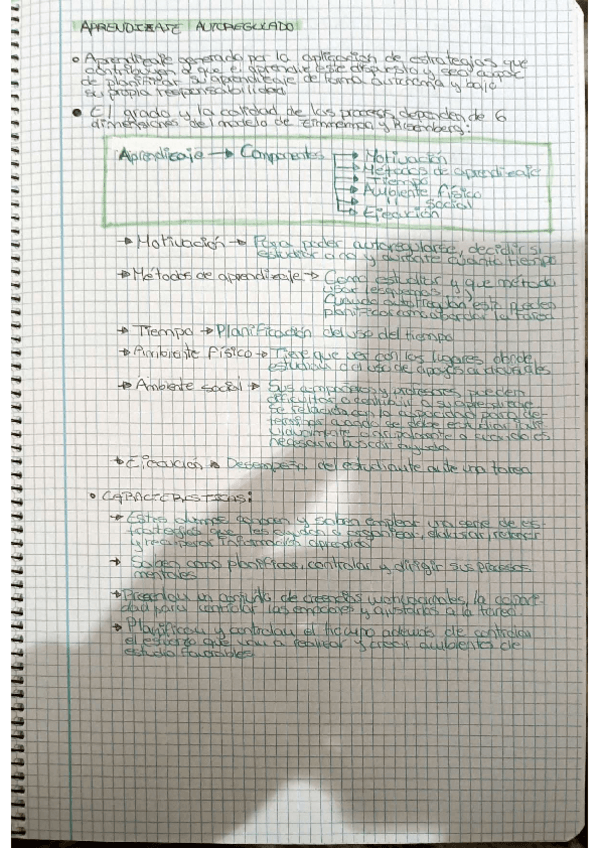 APRENDIZAJE AUTOREGULADO
• Aprendizaje generado por la aplicación de estrategias que
contribuyen a que el aprendiz esté dispuesto y sea capaz
de planificar su aprendizaje de forma autónoma y bajo
su propia responsabilidad
• El grado y la calidad de los procesos dependen de 6
dimensiones del modelo de Zimmerman y
Aprendizaje → Componentes → Motivación
→ Métodos de aprendizaje
→ Tiempo
→ Ambiente físico
→ " social
→ Ejecución
→ Motivación → Para poder autoregularse, decidir si
estudiar o no y durante cuánto tiempo
→ Métodos de aprendizaje → Como estudiar y que método
usar (esquemas)
planificar como abordar la tarea
→ Tiempo → Planificación del uso del tiempo
→ Ambiente físico → Tiene que ver con los lugares donde
estudian del uso de apoyos
→ Ambiente social → Sus compañeros y profesores pueden
dificultar o contribuir a su aprendizaje
se relaciona con la capacidad para de-
terminar cuando se debe estudiar
o acompañado o cuando es
necesario buscar ayuda
→ Ejecución → Desempeño del estudiante ante una tarea
• CARACTERÍSTICAS:
→ Estos alumnos conocen y saben emplear una serie de es-
trategias que les ayudan a organizar, elaborar,
y recuperar información aprendida
→ Saben como planificar, controlar y dirigir sus procesos
mentales
→ Presentan un conjunto de creencias motivacionales, la capaci-
dad para controlar las emociones y ajustarlas a la tarea
→ Planifican y controlan el tiempo además de controlar
el esfuerzo que van a realizar y crear ambientes de
estudio favorables